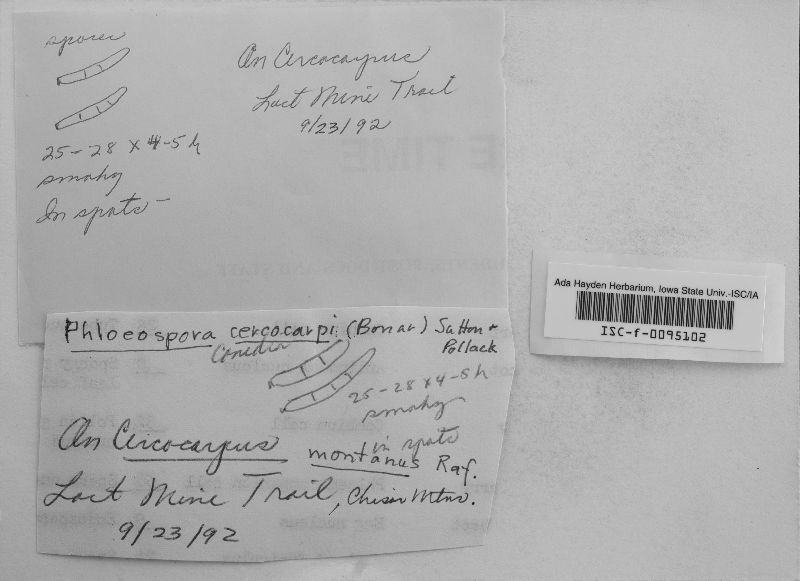 spores
25-28 x 4-5 µ
smoky
In spots -
On Cercocarpus
Lost Mine Trail
9/23/92
Ada Hayden Herbarium, Iowa State Univ.-ISC/IA
ISC-f-0095102
Phloeospora cercocarpi (Bonar) Sutton +
Pollack
Conidia
25-28 x 4-5 µ
smoky
in spots
On Cercocarpus montanus Raf.
Lost Mine Trail, Chisos Mtns.
9/23/92